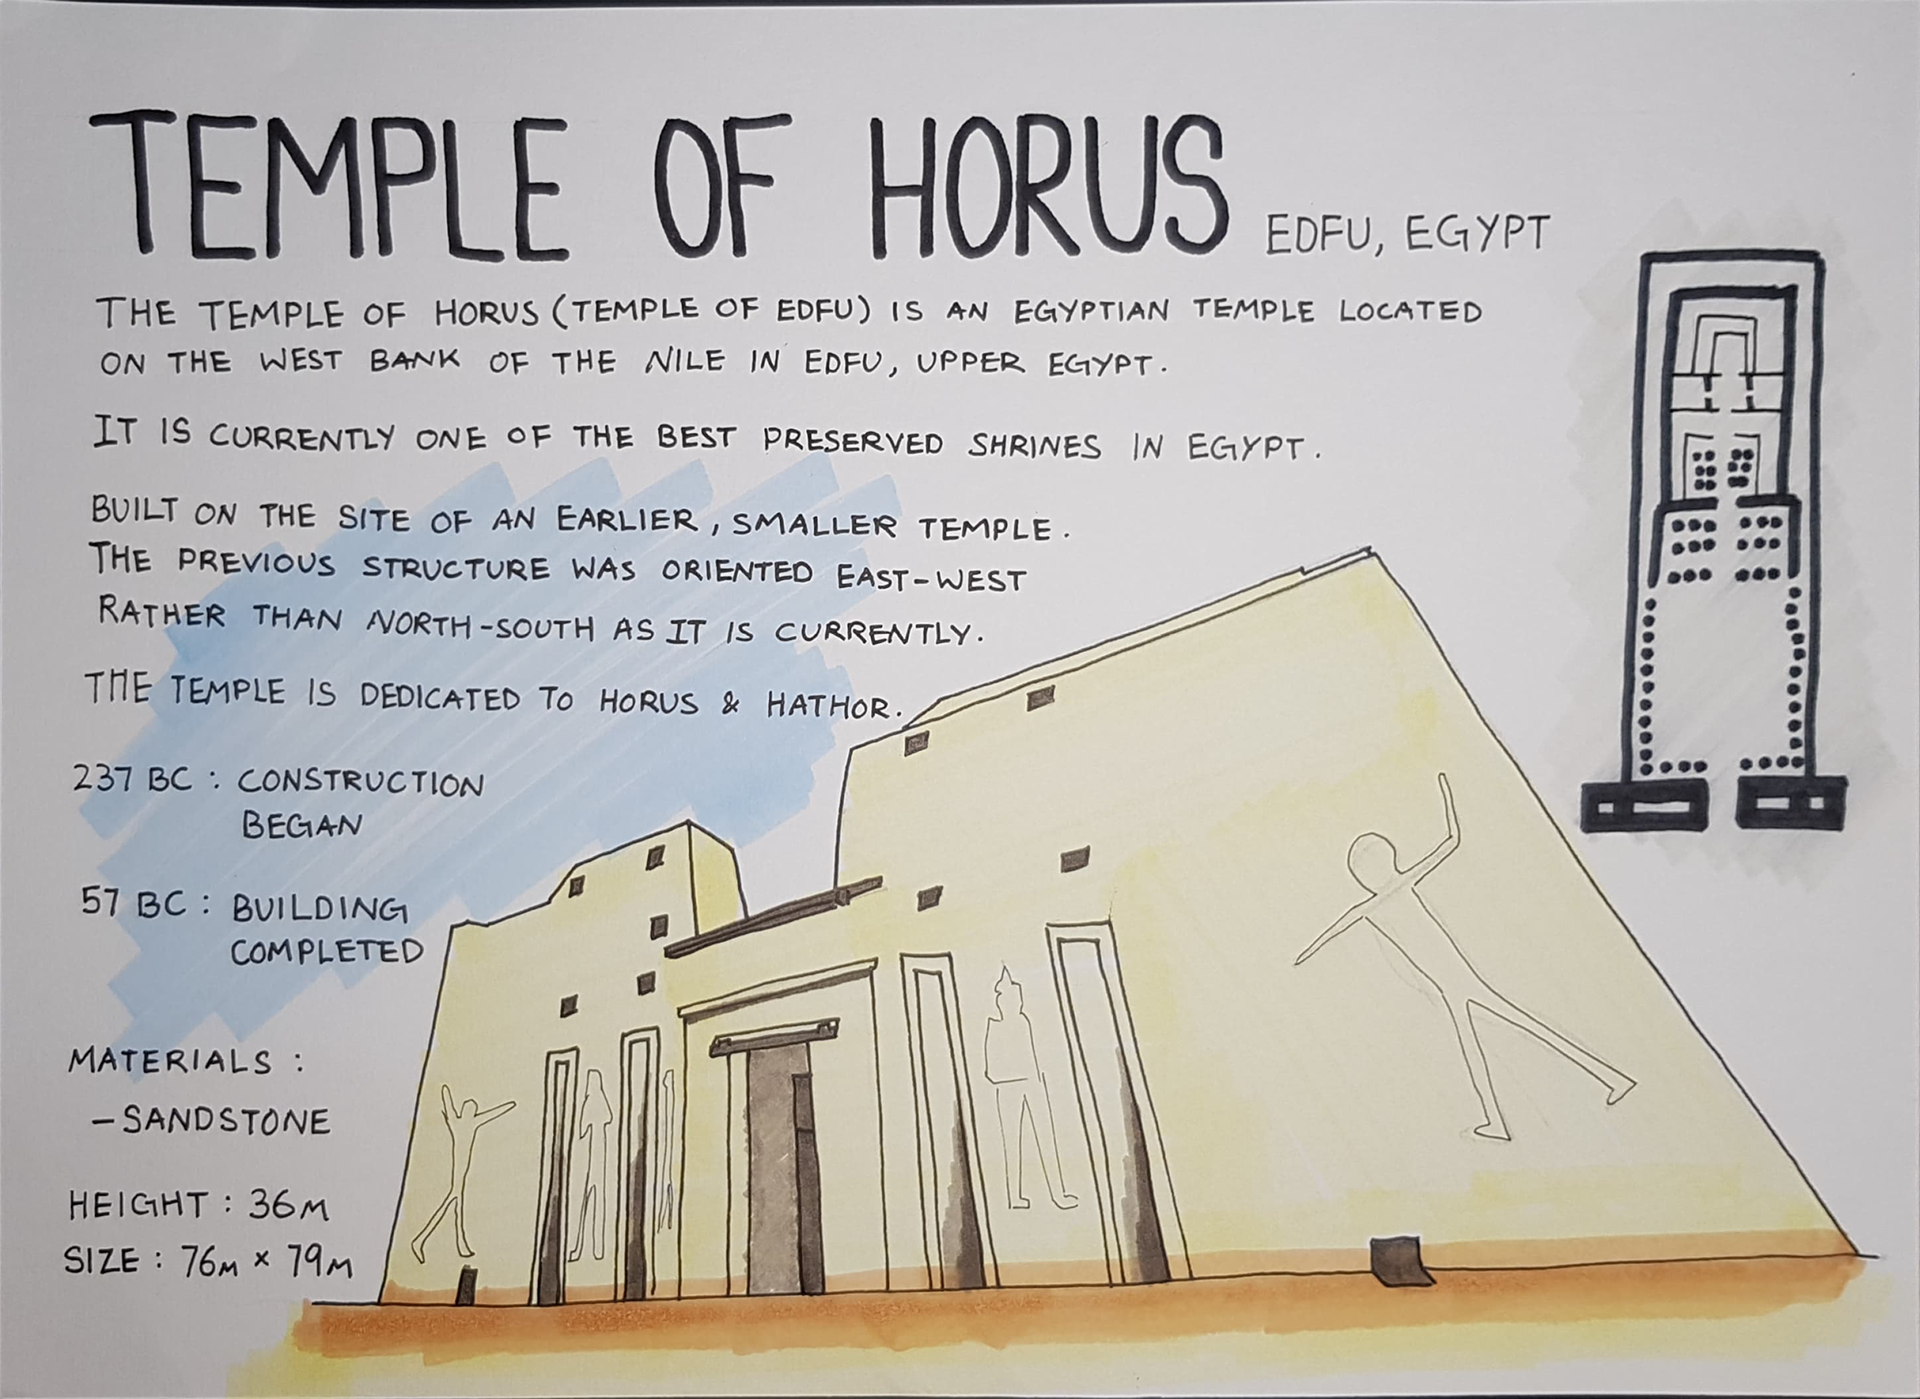 TEMPLE OF HORUS EDFU, EGYPT
THE TEMPLE OF HORUS (TEMPLE OF EDFU) IS AN EGYPTIAN TEMPLE LOCATED
ON THE WEST BANK OF THE NILE IN EDFU, UPPER EGYPT.
IT IS CURRENTLY ONE OF THE BEST PRESERVED SHRINES IN EGYPT.
BUILT ON THE SITE OF AN EARLIER, SMALLER TEMPLE.
THE PREVIOUS STRUCTURE WAS ORIENTED EAST-WEST
RATHER THAN NORTH-SOUTH AS IT IS CURRENTLY.
THE TEMPLE IS DEDICATED TO HORUS & HATHOR.
237 BC : CONSTRUCTION
BEGAN
57 BC : BUILDING
COMPLETED
MATERIALS :
- SANDSTONE
HEIGHT : 36M
SIZE : 76M × 79M